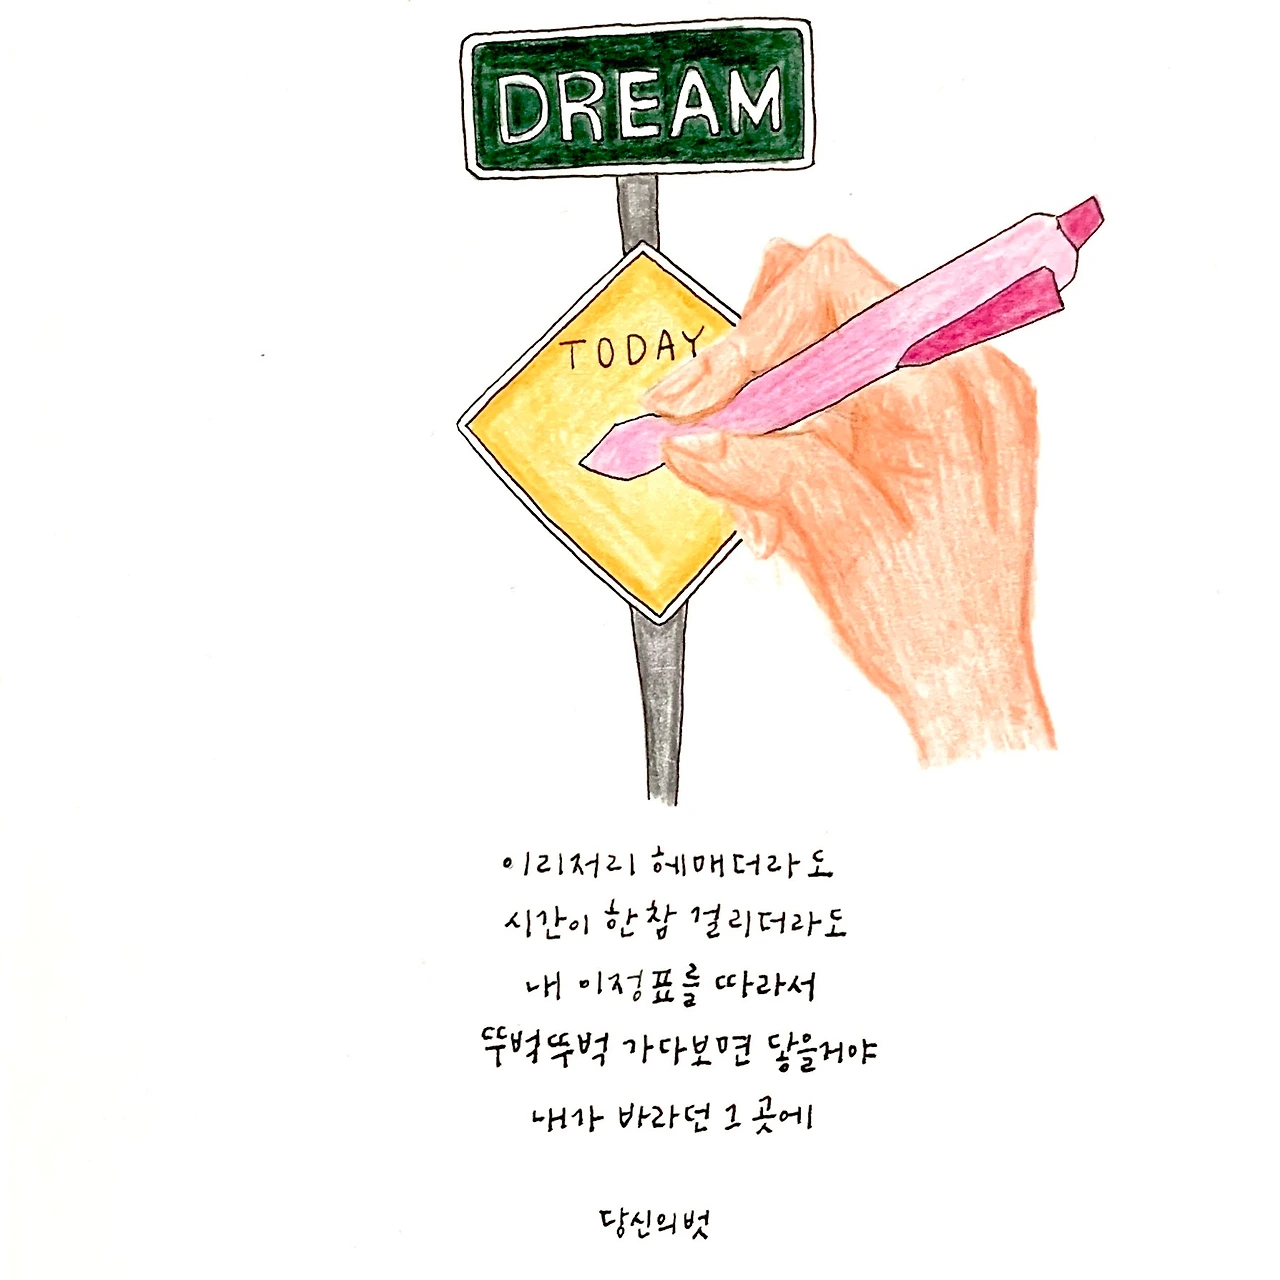 DREAM
TODAY
이리저리 헤매더라도
시간이 한참 걸리더라도
내 이정표를 따라서
뚜벅뚜벅 가다보면 닿을거야
내가 바라던 그 곳에
당신의벗